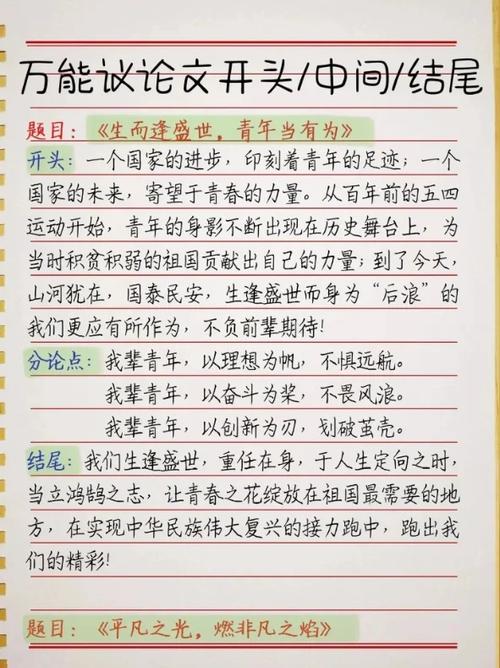 万能议论文开头/中间/结尾
题目：《生而逢盛世，青年当有为》
开头：一个国家的进步，印刻着青年的足迹；一个
国家的未来，寄望于青春的力量。从百年前的五四
运动开始，青年的身影不断出现在历史舞台上，为
当时积贫积弱的祖国贡献出自己的力量；到了今天，
山河犹在，国泰民安，生逢盛世而身为“后浪”的
我们更应有所作为，不负前辈期待！
分论点：我辈青年，以理想为帆，不惧远航。
我辈青年，以奋斗为桨，不畏风浪。
我辈青年，以创新为刃，划破茧壳。
结尾：我们生逢盛世，重任在身，于人生定向之时，
当立鸿鹄之志，让青春之花绽放在祖国最需要的地
方，在实现中华民族伟大复兴的接力跑中，跑出我
们的精彩！
题目：《平凡之光，燃非凡之焰》